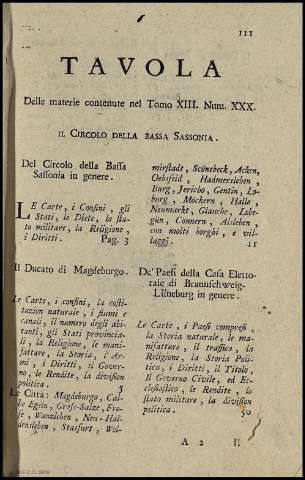 III
TAVOLA
Delle materie contenute nel Tomo XIII. Num. XXX.
IL CIRCOLO DELLA BASSA SASSONIA.
Del Circolo della Bassa
Sassonia in genere.
LE Carte, i Confini, gli
Stati, le Diete, lo sta-
to militare, la Religione,
i Diritti. Pag. 3
Il Ducato di Magdeburgo.
Le Carte, i confini, la costi-
tuzion naturale, i fiumi e
canali, il numero degli abi-
tanti, gli Stati provincia-
li, la Religione, le mani-
fatture, la Storia, l'Ar-
mi, i Diritti, il Gover-
no, le Rendite, la division
politica. 5
Le Città: Magdeburgo, Cal-
be Egeln, Gross-Salze, Fro-
se, Wanzleben, Neu-Hal-
densleben, Stassfurt, Wol-
mirstadt, Scönebeck, Acken,
Oebsfeld, Hadmersleben,
Burg, Jericho, Gentin, Lo-
burg, Mockern, Halle,
Neumarkt, Glauche, Lobe-
gün, Connern, Alsleben,
con molti borghi, e vil-
laggi. 21
De' Paesi della Casa Eletto-
rale di Braunschweig-
Lüneburg in genere.
Le Carte, i Paesi compresi,
la Storia naturale, le ma-
nifatture, il traffico, la
Religione, la Storia Poli-
tica, i Diritti, il Titolo,
Il Governo Civile, ed Ec-
clesiastico, le Rendite, lo
stato militare, la division
politica. 50
A 2 Il